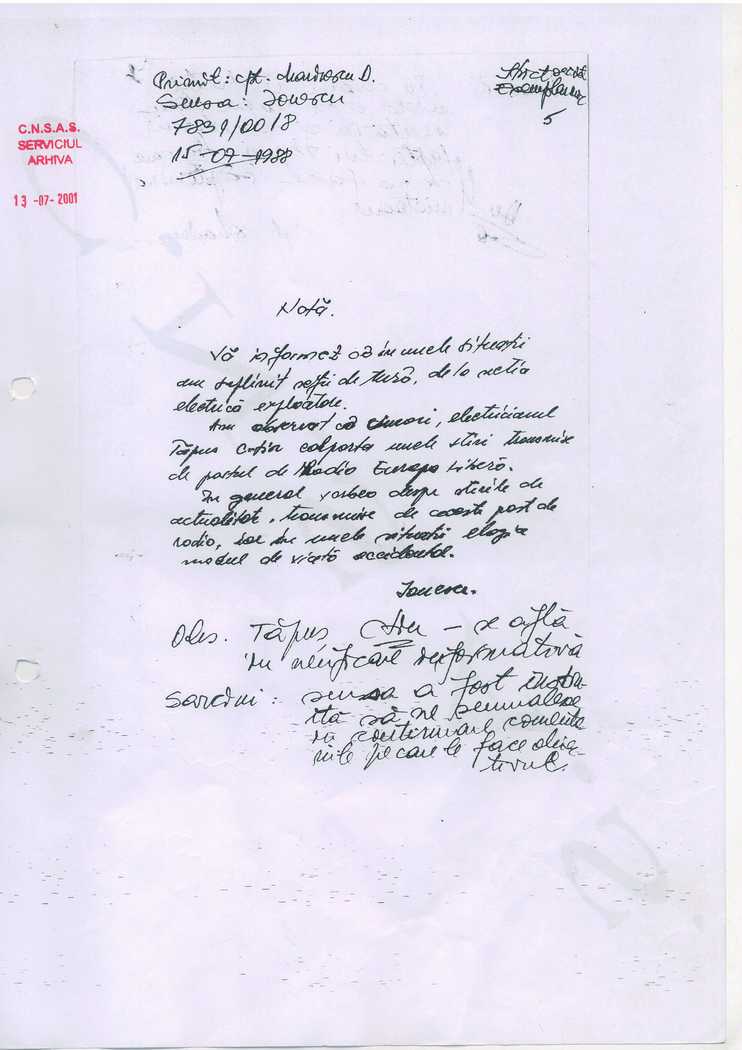 Primit: cpt. Marinescu D.
Sursa: Ionescu
7831/0018
15-07-1988
Strict secret
Exemplarul
5
C.N.S.A.S.
SERVICIUL
ARHIVA
13 -07- 2001
Notă.
Vă informez că în unele situații
am suplinit șefii de tură, de la secția
electrică exploatare.
Am observat că uneori, electricianul
Tăpus colporta unele știri transmise
de postul de Radio Europa Liberă.
În general vorbea despre știrile de
actualitate, transmise de acest post de
radio, iar în unele situații elogia
modul de viață occidental.
Ionescu.
Obs. Tăpus – se află
în verificare informativă
Sarcini: sursa a fost instru-
ită să ne semnaleze
în continuare comenta
riile pe care le face obiec-
tivul.